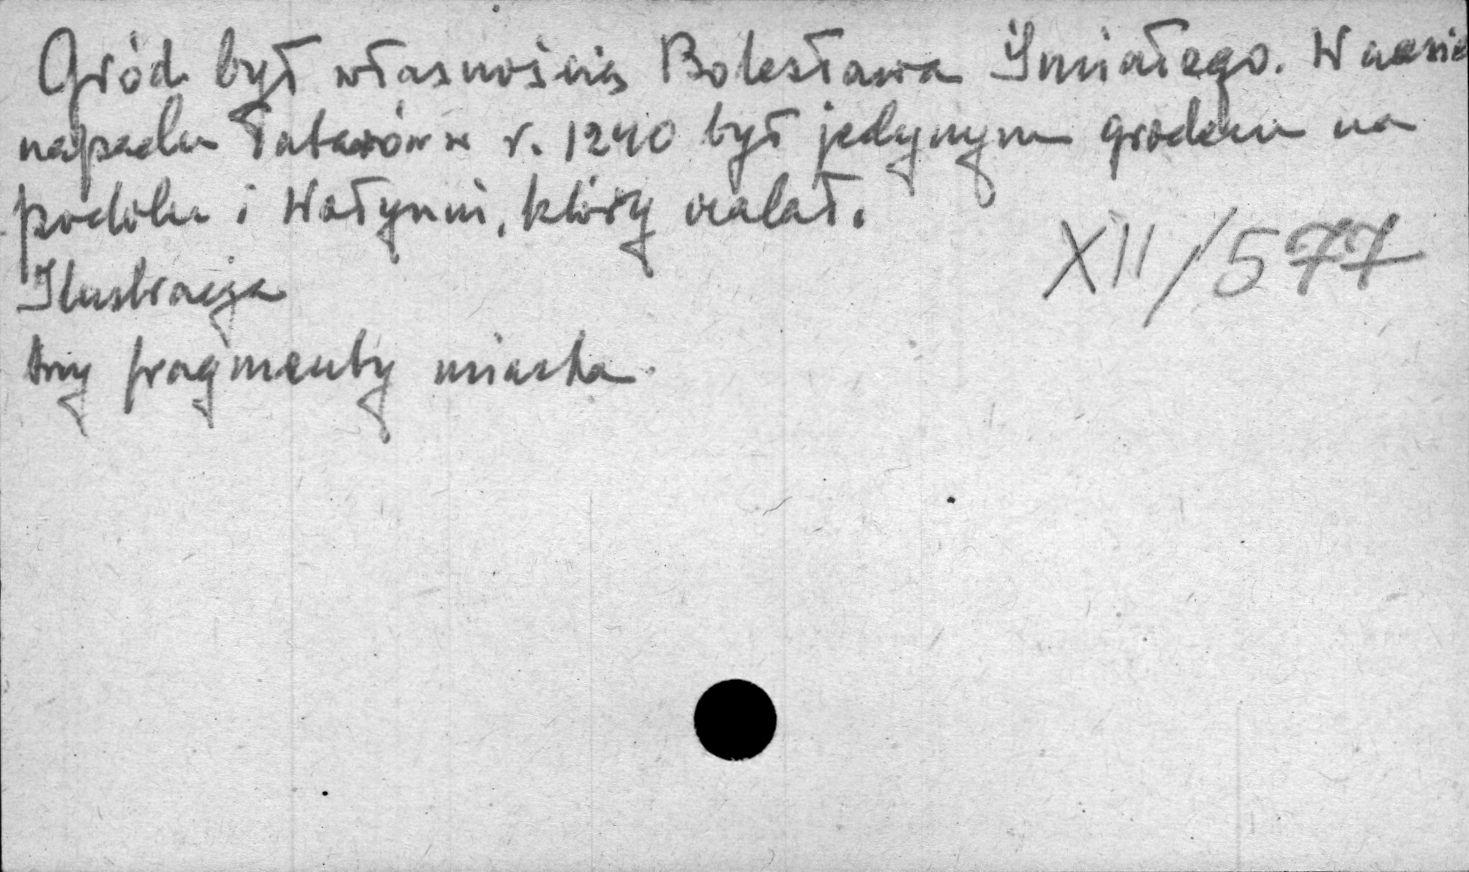 Gród był własnością Bolesława Śmiałego. W czasie
napadu Tatarów w r. 1240 był jedynym grodem na
podolu i Wołyniu, który ocalał.
XII/577
Ilustracja
trzy fragmenty miasta